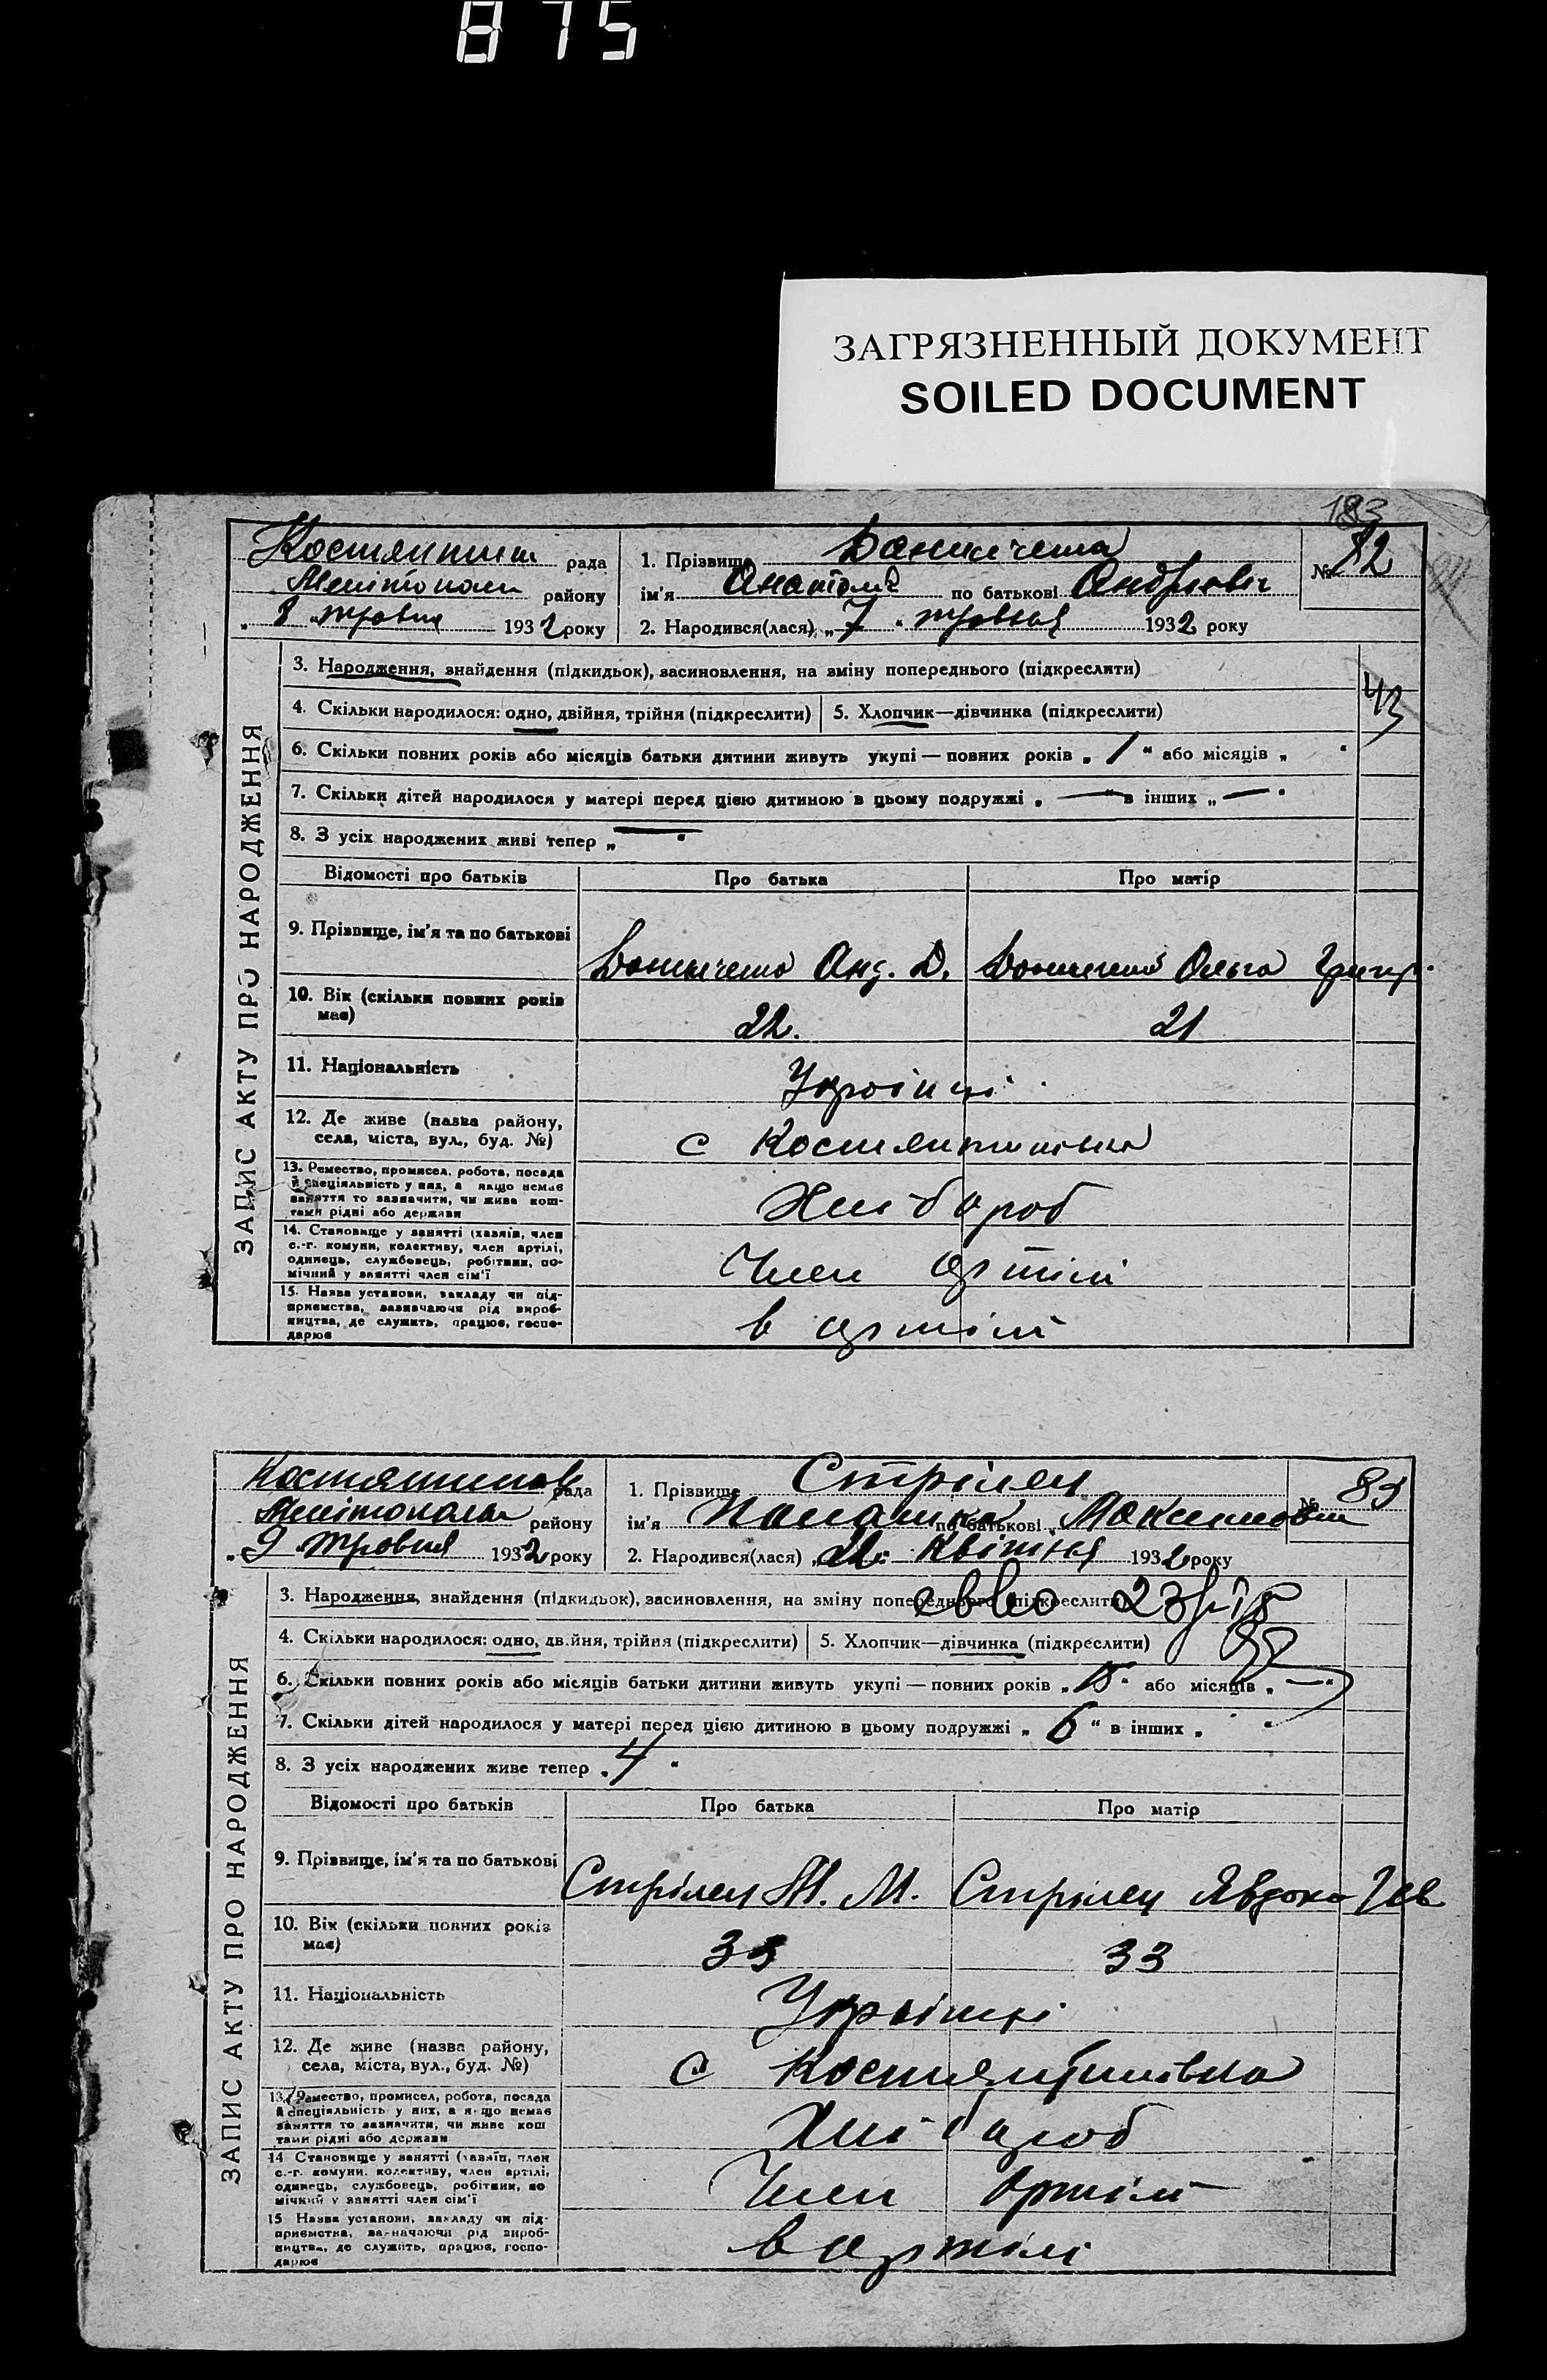 875
ЗАГРЯЗНЕННЫЙ ДОКУМЕНТ
SOILED DOCUMENT
183
ЗАПИС АКТУ ПРО НАРОДЖЕННЯ
рада
району
8 травня 1932 року
1. Прізвище
ім'я Анатолій по батькові Андрієвіч
2. Народився(лася) „7“ травня 1932 року
№ 82
3. Народження, знайдення (підкидьок), засиновлення, на зміну попереднього (підкреслити)
43
4. Скільки народилося: одно, двійня, трійня (підкреслити) 5. Хлопчик—дівчинка (підкреслити)
6. Скільки повних років або місяців батьки дитини живуть укупі — повних років „1“ або місяців „ “
7. Скільки дітей народилося у матері перед цією дитиною в цьому подружжі „—“ в інших „—“
8. З усіх народжених живі тепер „—“
Відомості про батьків Про батька Про матір
9. Прізвище, ім'я та по батькові
Анд. Д. Ольга Григ.
10. Вік (скільки повних років має) 22. 21
11. Національність Українці
12. Де живе (назва району, села, міста, вул., буд. №) с Костянтинівка
13. Ремество, промисел, робота, посада й спеціяльність у них, а якщо немає заняття то зазначити, чи живе коштами рідні або держави
Хлібороб
14. Становище у занятті (хазяїн, член с.-г. комуни, колективу, член артілі, одинець, службовець, робітник, помічний у занятті член сім'ї
Член артілі
15. Назва установи, закладу чи підприємства, зазначаючи рід виробництва, де служить, працює, господарює
в артілі
ЗАПИС АКТУ ПРО НАРОДЖЕННЯ
Костянтинов рада
району
„9 травня 1932 року
1. Прізвище Стрілец
ім'я по батькові
2. Народився(лася) „22“ квітня 1932 року
№ 83
3. Народження, знайдення (підкидьок), засиновлення, на зміну попереднього (підкреслити)
4. Скільки народилося: одно, двійня, трійня (підкреслити) 5. Хлопчик—дівчинка (підкреслити)
6. Скільки повних років або місяців батьки дитини живуть укупі — повних років „15“ або місяців „—“
7. Скільки дітей народилося у матері перед цією дитиною в цьому подружжі „6“ в інших „ “
8. З усіх народжених живе тепер „4“
Відомості про батьків Про батька Про матір
9. Прізвище, ім'я та по батькові
Стрілец М. М. Стрілец Явдоха
10. Вік (скільки повних років має) 33 33
11. Національність Українці
12. Де живе (назва району, села, міста, вул., буд. №) с Костянтинівка
13. Ремество, промисел, робота, посада й спеціяльність у них, а якщо немає заняття то зазначити, чи живе коштами рідні або держави
Хлібороб
14 Становище у занятті (хазяїн, член с.-г. комуни, колективу, член артілі, одинець, службовець, робітник, помічний у занятті член сім'ї
Член Артілі
15 Назва установи, закладу чи підприємства, зазначаючи рід виробництва, де служить, працює, господарює
в артілі